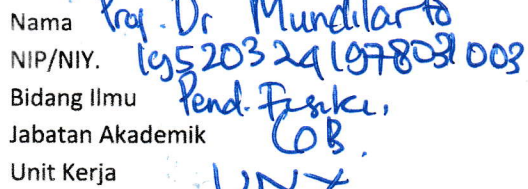 Nama Prof. Dr Mundilarto
NIP/NIY. 19520324197803 1 003
Bidang Ilmu Pend. Fisika,
Jabatan Akademik GB.
Unit Kerja UNY